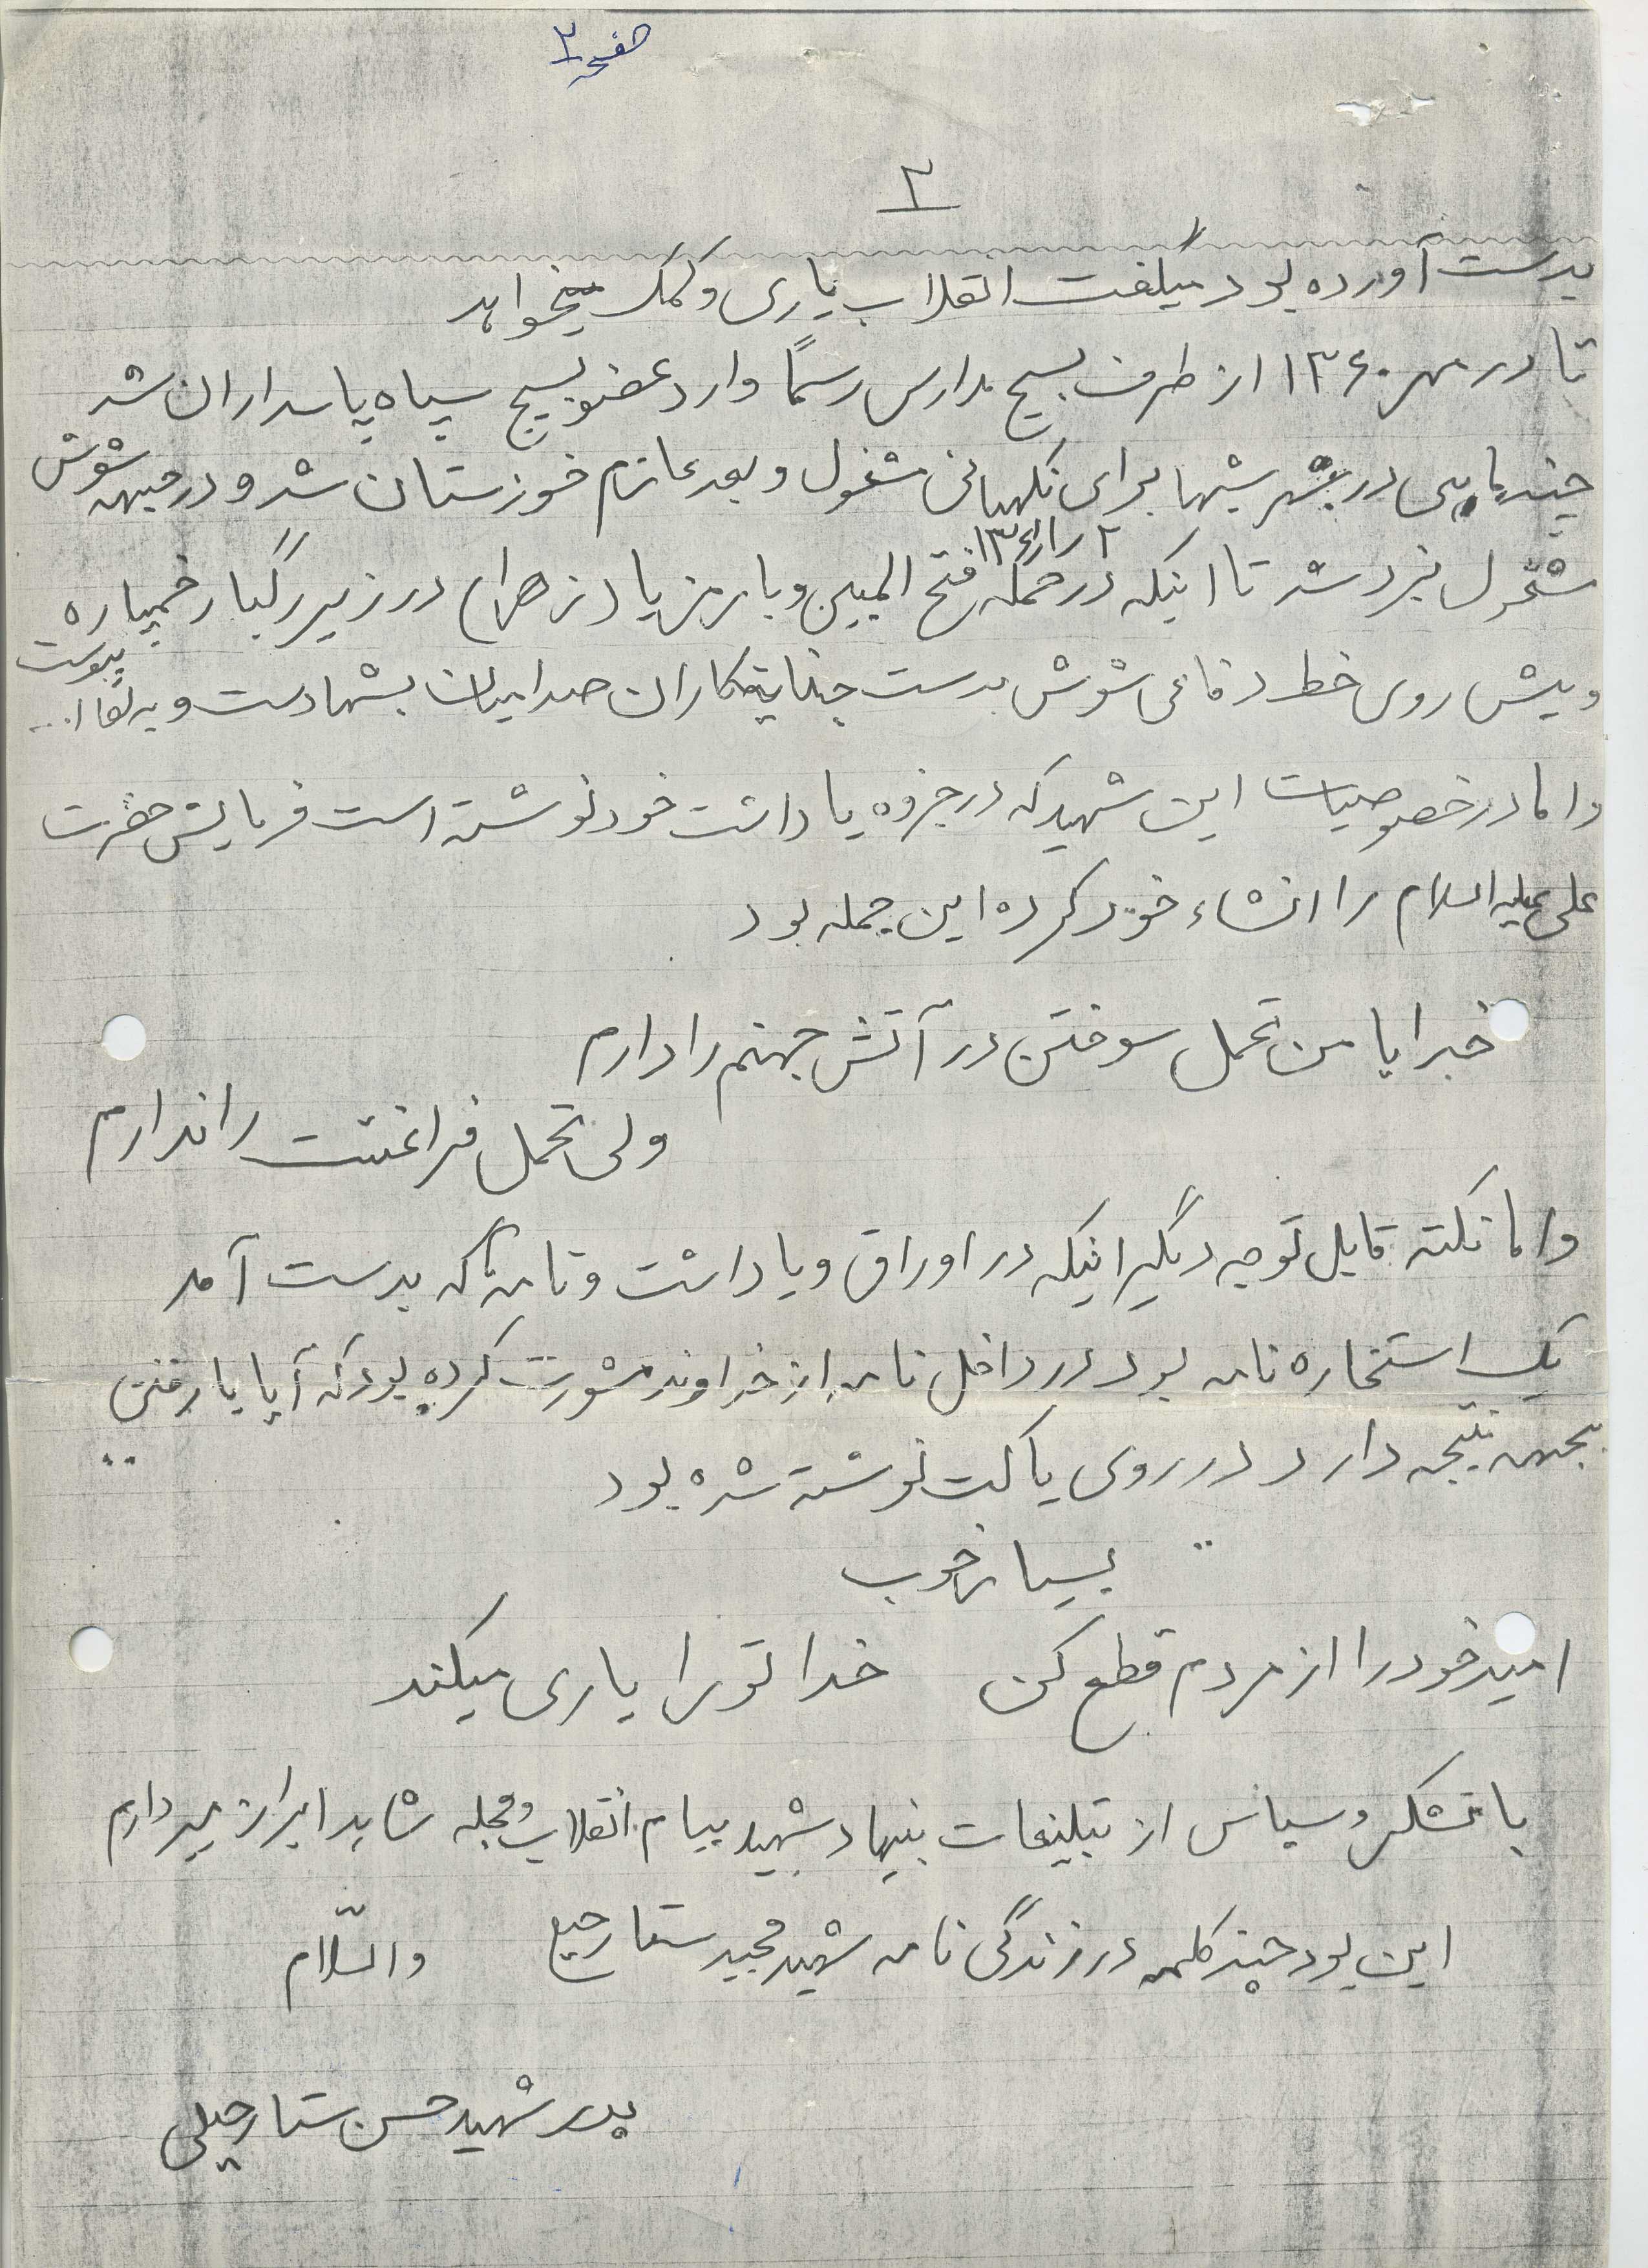 صفحه ۲
۲
بدست آورده بود میگفت انقلاب یاری و کمک میخواهد
تا در مهر ۱۳۶۰ از طرف بسیج مدارس رسماً وارد عضو بسیج سپاه پاسداران شد
چند ماهی در شهر شبها برای نگهبانی مشغول و بعد عازم خوزستان شد و در جبهه شوش
۲ر۱ر۱۳۶۱
مشغول نبرد شد تا اینکه در حمله فتح المبین و با رمز یا (زهرا) در زیر رگبار خمپاره
و پیش روی خط دفاعی شوش بدست جنایتکاران صدامیان بشهادت و به لقاا... پیوست
و اما در خصوصیات این شهید که در جزوه یاداشت خود نوشته است فرمایش حضرت
علی علیه السلام را انشاء خود کرده این جمله بود
خدایا من تحمل سوختن در آتش جهنم را دارم
ولی تحمل فراغتت را ندارم
و اما نکته قابل توجه دیگر اینکه در اوراق و یاداشت و نامه که بدست آمد
یک استخاره نامه بود در داخل نامه از خداوند مشورت کرده بود که آیا با رفتن
بجبهه نتیجه دارد در روی پاکت نوشته شده بود
بسیار خوب
امید خود را از مردم قطع کن خدا تو را یاری میکند
با تشکر و سپاس از تبلیغات بنیاد شهید پیام انقلاب و مجله شاهد ابراز میدارم
این بود چند کلمه در زندگی نامه شهید مجید ستار والسّلام
پدر شهید حسن ستار